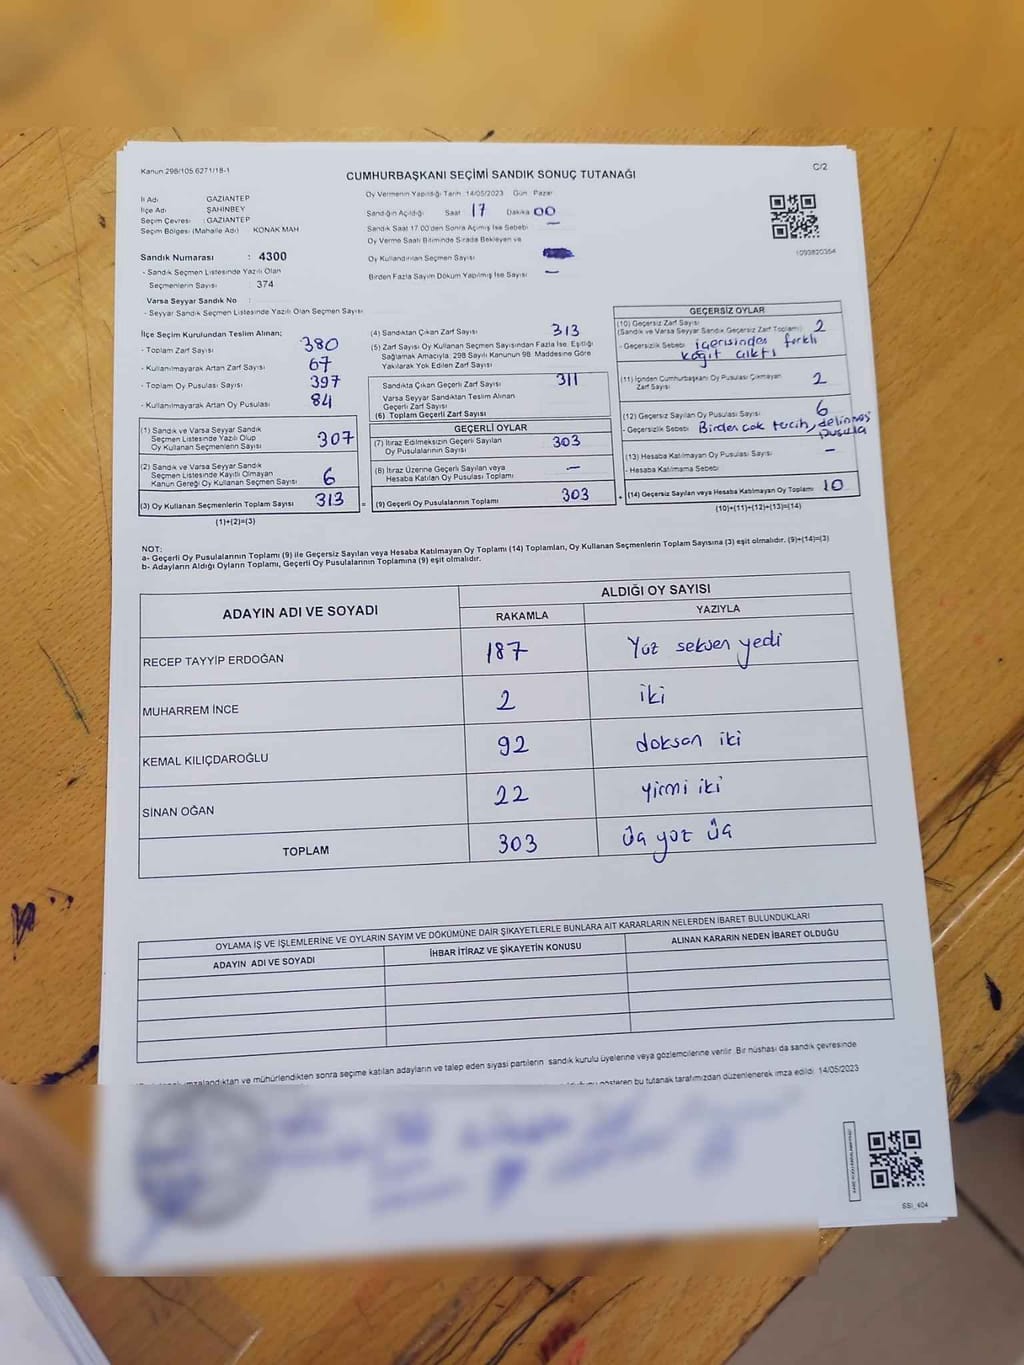 Kanun 298/105 6271/18-1
C/2
CUMHURBAŞKANI SEÇİMİ SANDIK SONUÇ TUTANAĞI
İl Adı GAZİANTEP
İlçe Adı ŞAHİNBEY
Seçim Çevresi : GAZİANTEP
Seçim Bölgesi (Mahalle Adı) KONAK MAH
Sandık Numarası : 4300
- Sandık Seçmen Listesinde Yazılı Olan
Seçmenlerin Sayısı : 374
Varsa Seyyar Sandık No :
- Seyyar Sandık Seçmen Listesinde Yazılı Olan Seçmen Sayısı
Oy Vermenin Yapıldığı Tarih : 14/05/2023 Gün : Pazar
Sandığın Açıldığı Saat 17 Dakika 00
Sandık Saat 17.00'den Sonra Açılmış İse Sebebi —
Oy Verme Saati Bitiminde Sırada Bekleyen ve
Oy Kullandırılan Seçmen Sayısı
Birden Fazla Sayım Döküm Yapılmış İse Sayısı —
1093820354
İlçe Seçim Kurulundan Teslim Alınan;
- Toplam Zarf Sayısı 380
- Kullanılmayarak Artan Zarf Sayısı 67
- Toplam Oy Pusulası Sayısı 397
- Kullanılmayarak Artan Oy Pusulası 84
(1) Sandık ve Varsa Seyyar Sandık
Seçmen Listesinde Yazılı Olup
Oy Kullanan Seçmenlerin Sayısı 307
(2) Sandık ve Varsa Seyyar Sandık
Seçmen Listesinde Kayıtlı Olmayan
Kanun Gereği Oy Kullanan Seçmen Sayısı 6
(3) Oy Kullanan Seçmenlerin Toplam Sayısı 313
(1)+(2)=(3)
(4) Sandıktan Çıkan Zarf Sayısı 313
(5) Zarf Sayısı Oy Kullanan Seçmen Sayısından Fazla İse, Eşitliği
Sağlamak Amacıyla, 298 Sayılı Kanunun 98. Maddesine Göre
Yakılarak Yok Edilen Zarf Sayısı
Sandıkta Çıkan Geçerli Zarf Sayısı 311
Varsa Seyyar Sandıktan Teslim Alınan
Geçerli Zarf Sayısı
(6) Toplam Geçerli Zarf Sayısı
GEÇERLİ OYLAR
(7) İtiraz Edilmeksizin Geçerli Sayılan
Oy Pusulalarının Sayısı 303
(8) İtiraz Üzerine Geçerli Sayılan veya
Hesaba Katılan Oy Pusulası Toplamı —
= (9) Geçerli Oy Pusulalarının Toplamı 303
GEÇERSİZ OYLAR
(10) Geçersiz Zarf Sayısı
(Sandık ve Varsa Seyyar Sandık Geçersiz Zarf Toplamı) 2
- Geçersizlik Sebebi içerisinden farklı
kağıt çıktı
(11) İçinden Cumhurbaşkanı Oy Pusulası Çıkmayan
Zarf Sayısı 2
(12) Geçersiz Sayılan Oy Pusulası Sayısı 6
- Geçersizlik Sebebi Birden çok tercih, delinmiş
pusula
(13) Hesaba Katılmayan Oy Pusulası Sayısı –
- Hesaba Katılmama Sebebi
+ (14) Geçersiz Sayılan veya Hesaba Katılmayan Oy Toplamı 10
(10)+(11)+(12)+(13)=(14)
NOT:
a- Geçerli Oy Pusulalarının Toplamı (9) ile Geçersiz Sayılan veya Hesaba Katılmayan Oy Toplamı (14) Toplamları, Oy Kullanan Seçmenlerin Toplam Sayısına (3) eşit olmalıdır. (9)+(14)=(3)
b- Adayların Aldığı Oyların Toplamı, Geçerli Oy Pusulalarının Toplamına (9) eşit olmalıdır.
ADAYIN ADI VE SOYADI ALDIĞI OY SAYISI
RAKAMLA YAZIYLA
RECEP TAYYİP ERDOĞAN 187 Yüz seksen yedi
MUHARREM İNCE 2 iki
KEMAL KILIÇDAROĞLU 92 doksan iki
SİNAN OĞAN 22 yirmi iki
TOPLAM 303 üç yüz üç
OYLAMA İŞ VE İŞLEMLERİNE VE OYLARIN SAYIM VE DÖKÜMÜNE DAİR ŞİKAYETLERLE BUNLARA AİT KARARLARIN NELERDEN İBARET BULUNDUKLARI
ADAYIN ADI VE SOYADI İHBAR İTİRAZ VE ŞİKAYETİN KONUSU ALINAN KARARIN NEDEN İBARET OLDUĞU
imzalandıktan ve mühürlendikten sonra seçime katılan adayların ve talep eden siyasi partilerin sandık kurulu üyelerine veya gözlemcilerine verilir. Bir nüshası da sandık çevresinde
gösteren bu tutanak tarafımızdan düzenlenerek imza edildi. 14/05/2023
SSI_404